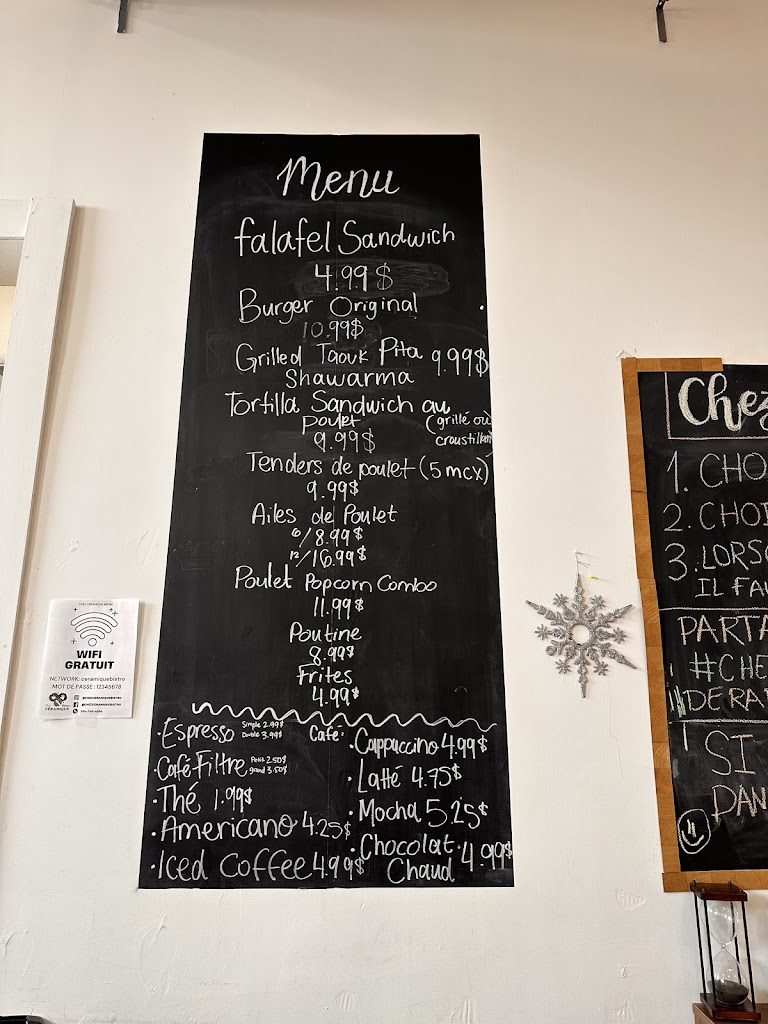 Menu
falafel Sandwich
4.99$
Burger Original
10.99$
Grilled Taouk Pita 9.99$
Shawarma
Tortilla Sandwich au
poulet (grillé où
croustillant
9.99$
Tenders de poulet (5 mcx)
9.99$
Ailes de Poulet
6/8.99$
12/16.99$
Poulet Popcorn Combo
11.99$
Poutine
8.99$
Frites
4.99$
Café:
·Espresso Simple 2.99$
Double 3.99$
·Café Filtre Petit 2.50$
grand 3.50$
·Thé 1.99$
·Americano 4.25$
·Iced Coffee 4.99$
·Cappuccino 4.99$
·Latté 4.75$
·Mocha 5.25$
·Chocolat 4.99$
Chaud
WIFI
GRATUIT
NETWORK: ceramiquebistro
MOT DE PASSE: 12345678
Chez
1. CHO
2. CHOI
3. LORSQ
IL FAU
PARTA
#CHE
DERA
SI
DAN